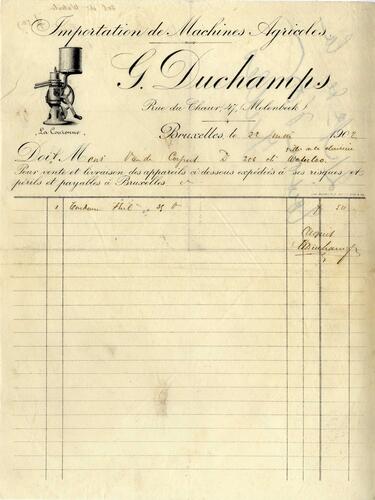 Importation de Machines Agricoles
G. Duchamps
Rue du Chaur, 47, Molenbeek
La Couronne.
Bruxelles, le 22 mai 1902
Doit Mons Van de 206 ch Waterloo
Pour vente et livraison des appareils ci dessous expédiés à ses risques et
périls et payables à Bruxelles
1 25 50
Duchamps